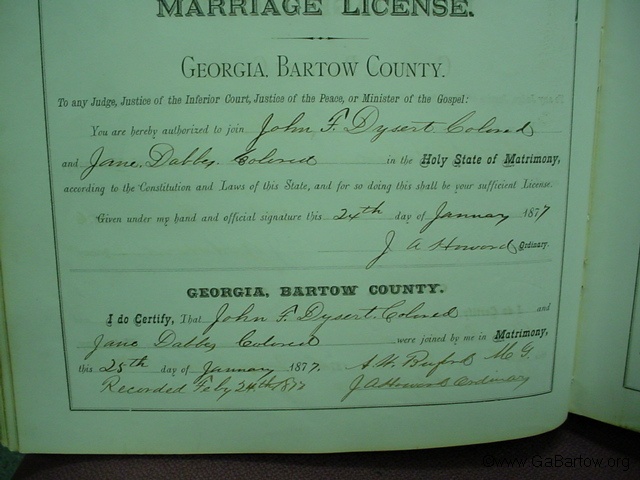 MARRIAGE LICENSE.
GEORGIA, BARTOW COUNTY.
To any Judge, Justice of the Inferior Court, Justice of the Peace, or Minister of the Gospel:
You are hereby authorized to join John F. Dysert Colored
and Jane Dabbs Colored in the Holy State of Matrimony,
according to the Constitution and Laws of this State, and for so doing this shall be your sufficient License.
Given under my hand and official signature this 24th day of January 1877
J A Howard Ordinary.
GEORGIA, BARTOW COUNTY.
I do Certify, That John F. Dysert Colored and
Jane Dabbs Colored were joined by me in Matrimony,
this 25th day of January 1877. A. W. Buford M G.
Recorded Feby 24th 1877 J A Howard Ordinary
©www.GaBartow.org